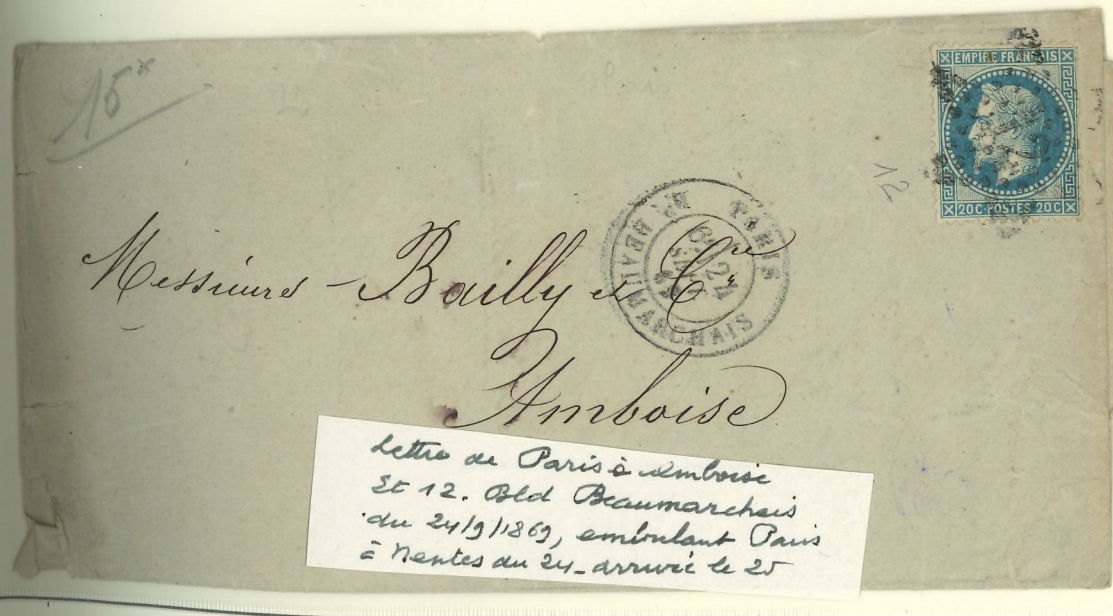 15x
EMPIRE FRANÇAIS
20 C · POSTES 20 C
12
PARIS
BD BEAUMARCHAIS
24
SEPT
69
Messieurs - Bailly et Cie
Amboise
Lettre de Paris à Amboise
Et 12. Bld Beaumarchais
du 24/9/1869, ambulant Paris
à Nantes du 24 - arrivée le 25